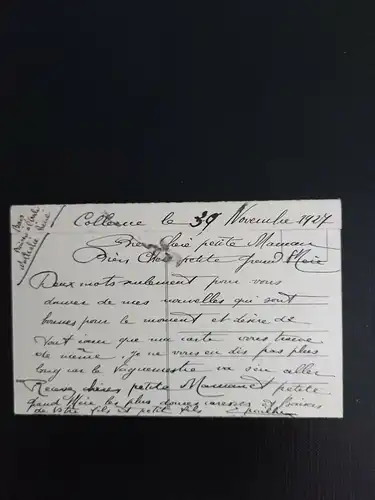 le 30 Novembre 1927
Bien petite Maman
Bien petite grand Mère
Deux mots seulement pour vous
donner de mes nouvelles qui sont
bonnes pour le moment et désire de
tout que ma carte vous trouve
de même. Je ne vous en dis pas plus
long car le Vaguemestre va s'en aller
chères petite Maman et petite
grand Mère les plus douces caresses et Baisers
de votre fils et petit fils